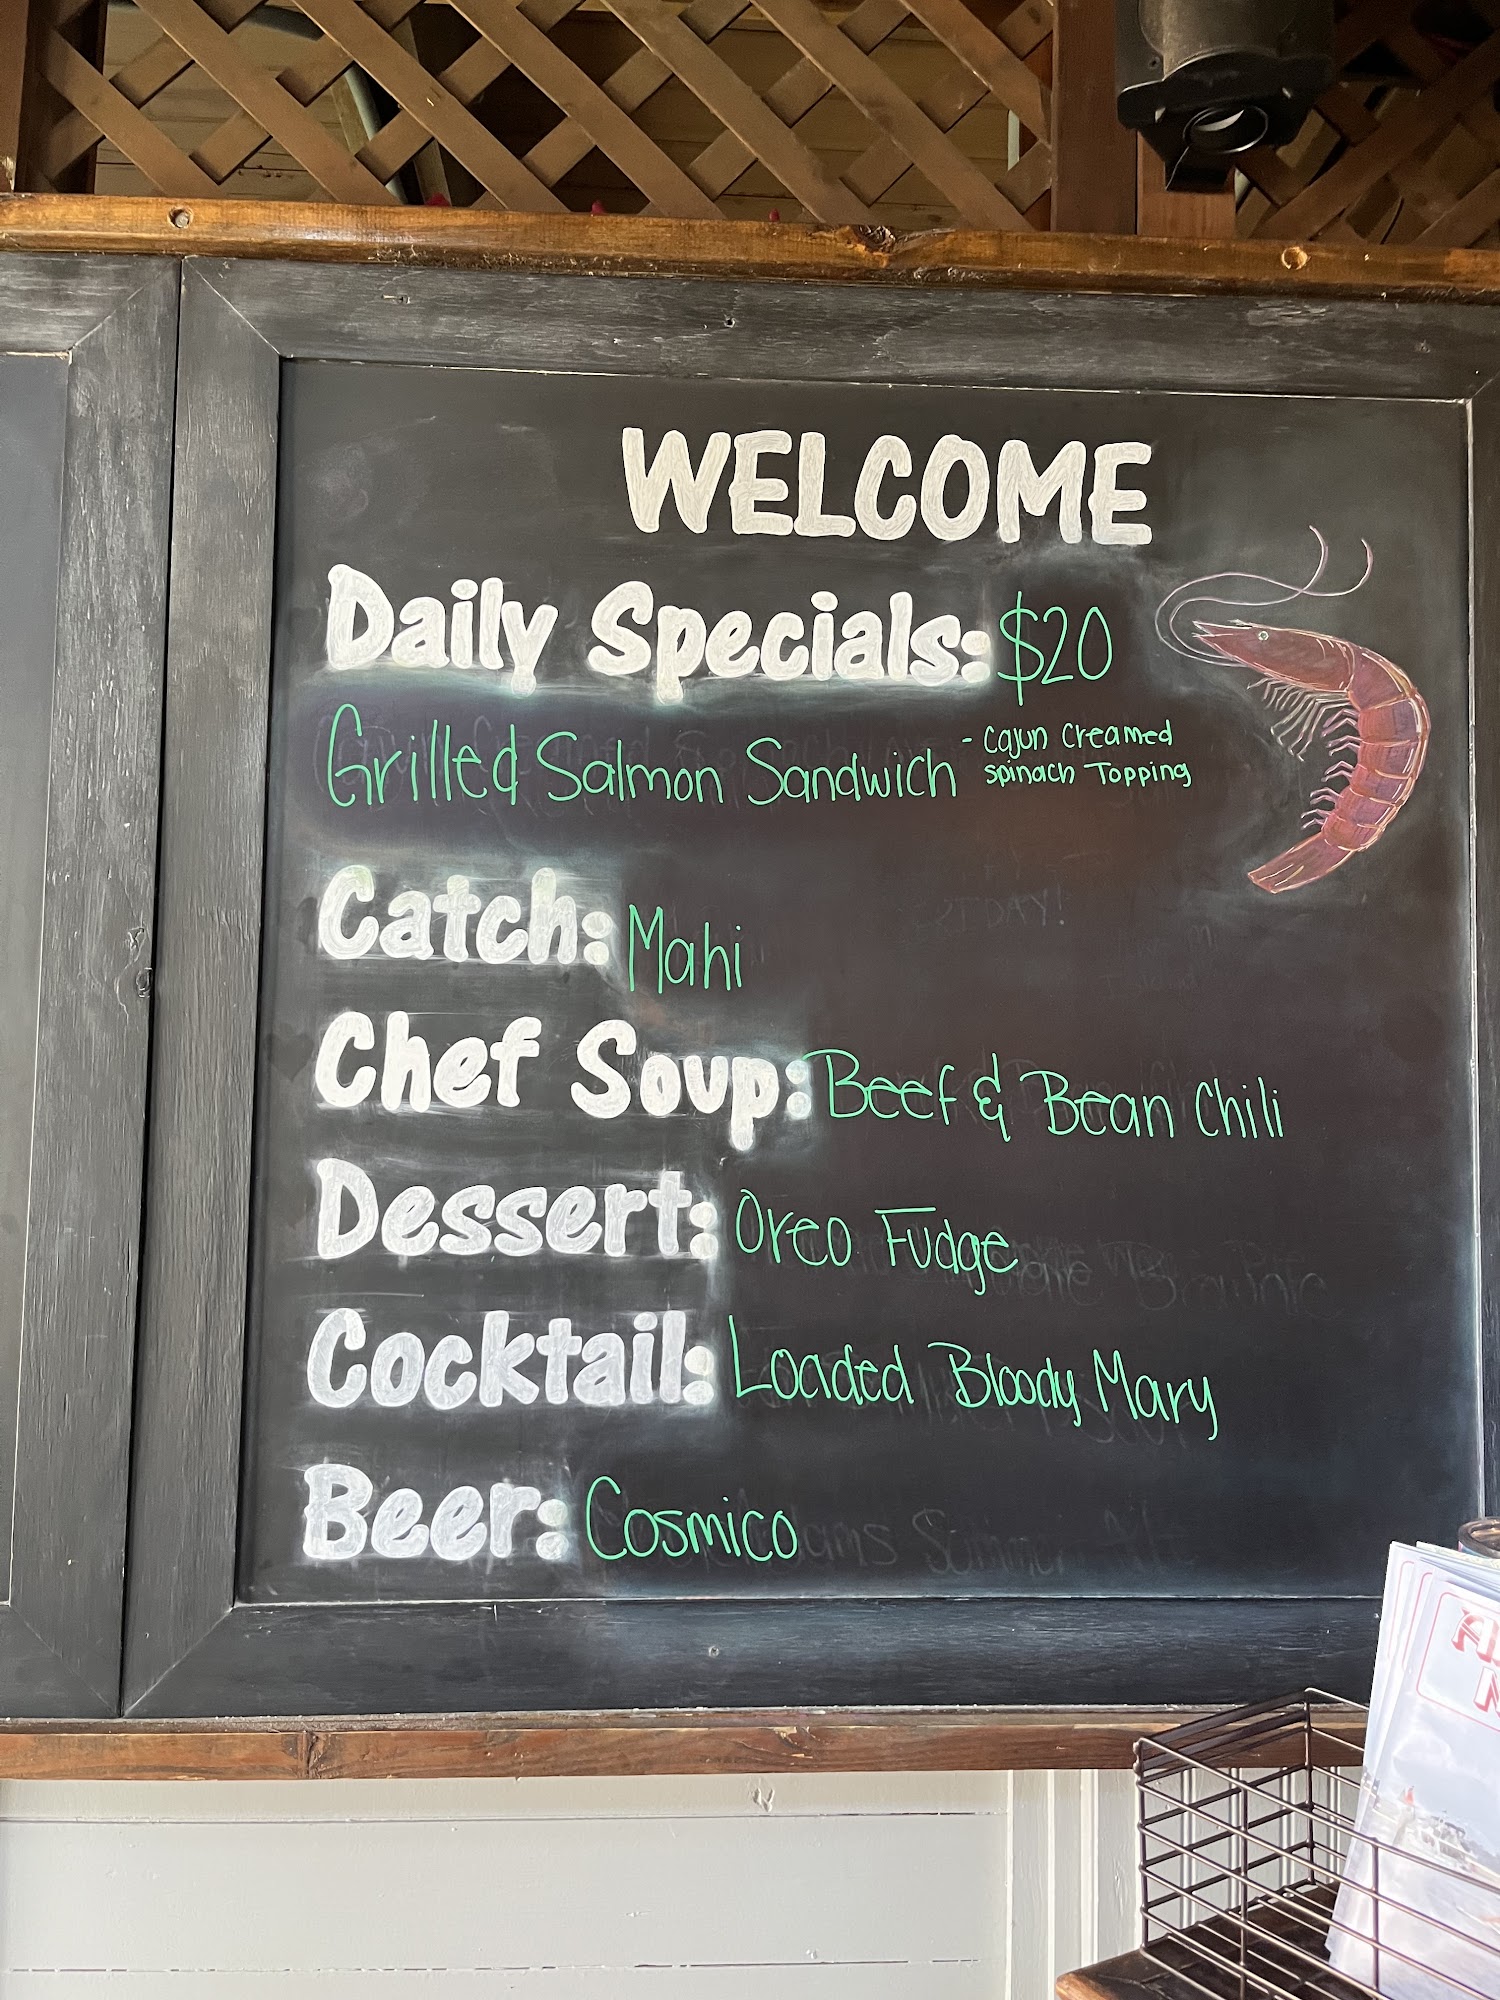 WELCOME
Daily Specials: $20
Grilled Salmon Sandwich - Cajun Creamed
spinach Topping
Catch: Mahi
Chef Soup: Beef & Bean Chili
Dessert: Oreo Fudge
Cocktail: Loaded Bloody Mary
Beer: Cosmico